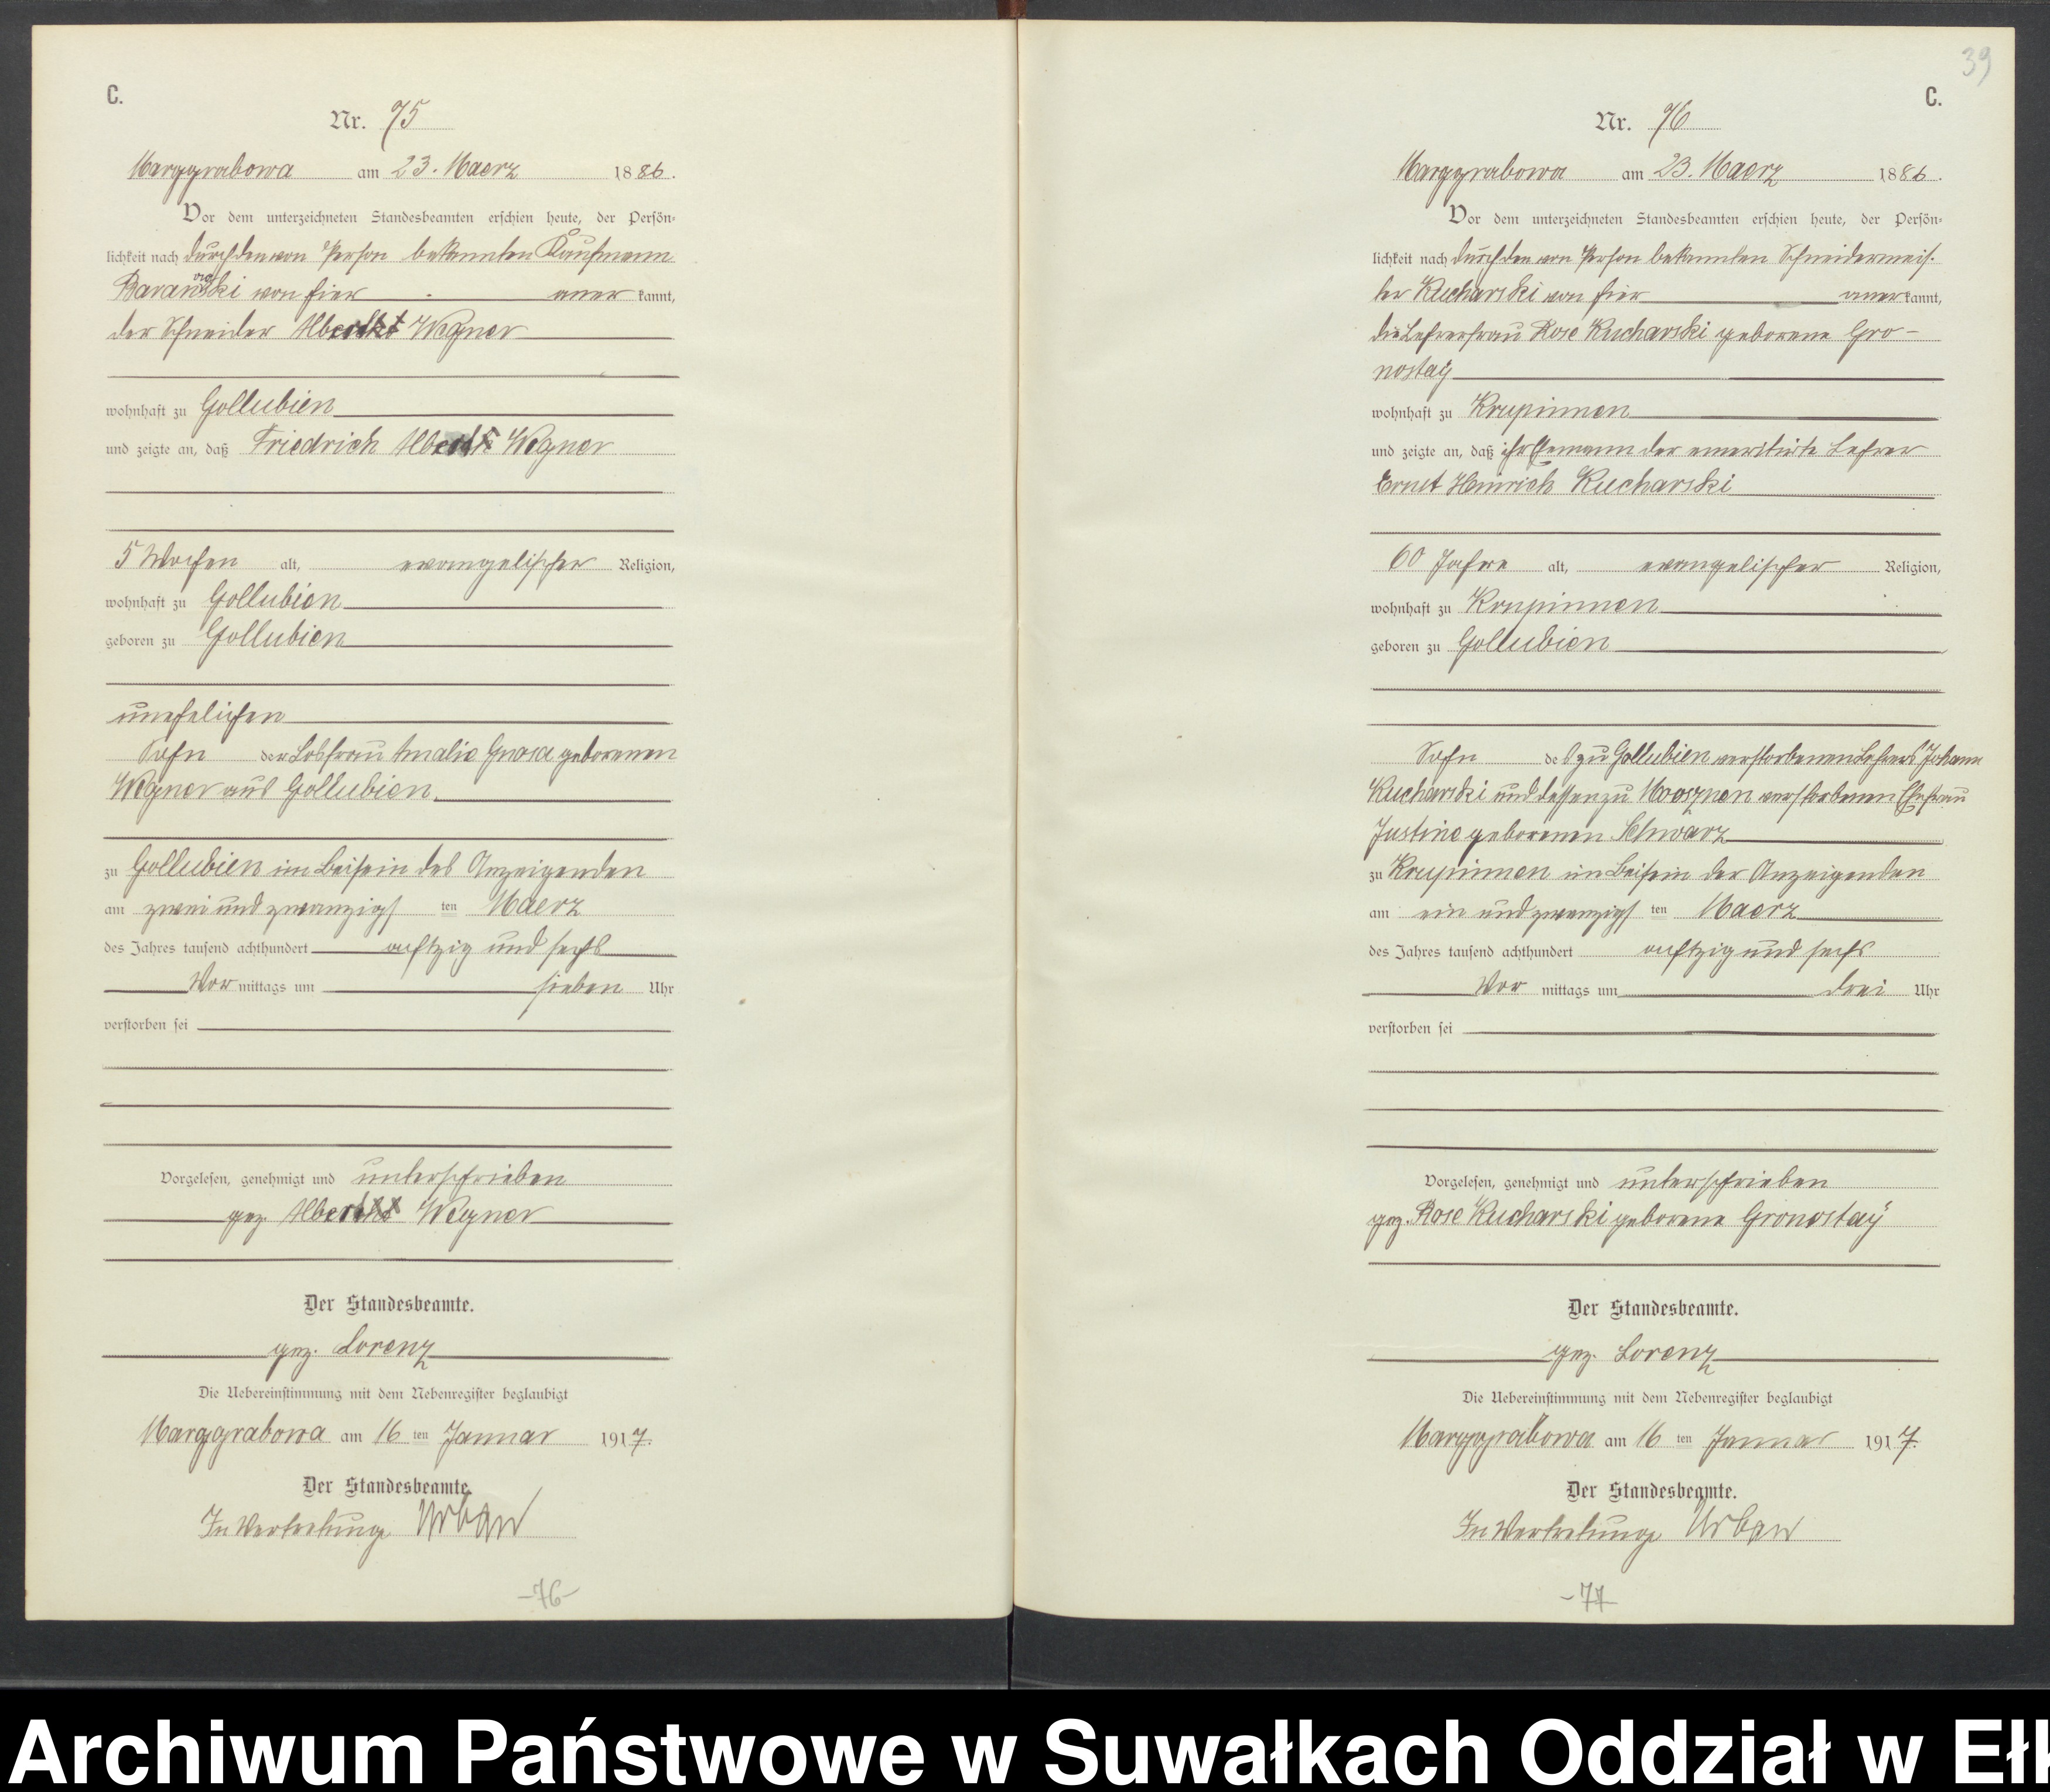 C.
Nr. 75
Marggrabowa am 23. Maerz 1886.
Vor dem unterzeichneten Standesbeamten erschien heute, der Persön-
lichkeit nach durch den von Person bekannten Kaufmann
von hier aner kannt,
der Schneider Wegner
wohnhaft zu Gollubien
und zeigte an, daß Friedrich Wegner
5 Wochen alt, evangelischer Religion,
wohnhaft zu Gollubien
geboren zu Gollubien
unehelichen
Sohn der Losfrau Amalie geborenen
Wegner aus Gollubien.
zu Gollubien im Beisein des Anzeigenden
am zwei und zwanzigs ten Maerz
des Jahres tausend achthundert achtzig und sechs
Vor mittags um sieben Uhr
verstorben sei
Vorgelesen, genehmigt und unterschrieben
gez. Wegner
Der Standesbeamte.
gez. Lorenz
Die Uebereinstimmung mit dem Nebenregister beglaubigt
Marggrabowa am 16 ten Januar 1917.
Der Standesbeamte.
In Vertretung Urban
-76-
39
C.
Nr. 76
Marggrabowa am 23. Maerz 1886.
Vor dem unterzeichneten Standesbeamten erschien heute, der Persön-
lichkeit nach durch den von Person bekannten Schneidermeis-
ter Kucharski von hier aner kannt,
die Lehrerfrau Rose Kucharski geborene Gro-
nostaÿ
wohnhaft zu Krupinnen
und zeigte an, daß ihr Ehemann der emeritirte Lehrer
Ernst Heinrich Kucharski
60 Jahre alt, evangelischer Religion,
wohnhaft zu Krupinnen
geboren zu Gollubien
Sohn de s zu Gollubien verstorbenen Lehrers Johann
Kucharski und dessen zu verstorbenen Ehefrau
Justine geborenen Schwarz
zu Krupinnen im Beisein der Anzeigenden
am ein und zwanzigs ten Maerz
des Jahres tausend achthundert achtzig und sechs
Vor mittags um drei Uhr
verstorben sei
Vorgelesen, genehmigt und unterschrieben
gez. Rose Kucharski geborene Gronostaÿ
Der Standesbeamte.
gez. Lorenz
Die Uebereinstimmung mit dem Nebenregister beglaubigt
Marggrabowa am 16 ten Januar 1917.
Der Standesbeamte.
In Vertretung Urban
-77-
Archiwum Państwowe w Suwałkach Oddział w Ełk